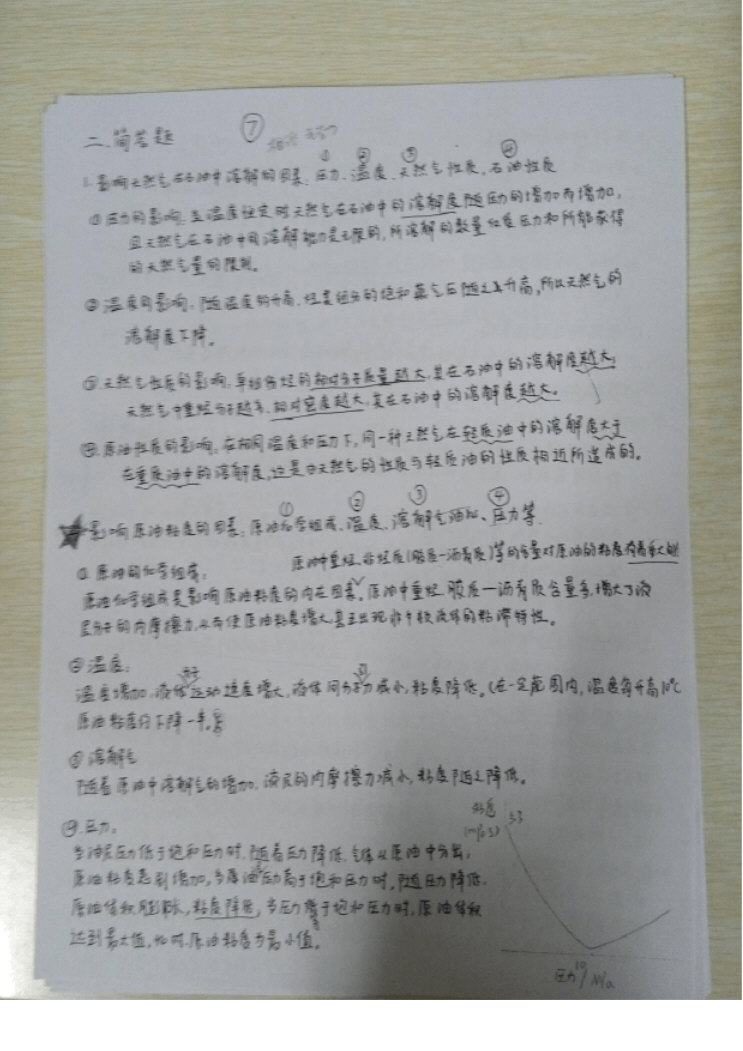 二.简答题 ⑦
1.影响天然气在石油中溶解的因素、①压力、②温度、③天然气性质,④石油性质
①压力的影响.当温度恒定时天然气在石油中的溶解度随压力的增加而增加,
且天然气在石油中的溶解能力是无限的,所溶解的数量仅受压力和所能获得
的天然气量的限制。
②温度的影响.随温度的升高.烃类组分的饱和蒸气压随之升高,所以天然气的
溶解度下降。
③天然气性质的影响.单组份烃的相对分子质量越大,其在石油中的溶解度越大,
天然气中重烃分子越多、相对密度越大,其在石油中的溶解度越大。
④.原油性质的影响.在相同温度和压力下,同一种天然气在轻质油中的溶解度大于
在重质油中的溶解度,这是由天然气的性质与轻质油的性质相近所造成的。
★影响原油粘度的因素:①原油化学组成、②温度、③溶解气油比、④压力等
①原油的化学组成: 原油中重烃、非烃质(胶质—沥青质)等的含量对原油的粘度有着重大
原油化学组成是影响原油粘度的内在因素。原油中重烃 胶质—沥青质含量多,增大了液
层分子的内摩擦力,从而使原油粘度增大,甚至出现非牛顿流体的粘滞特性。
②温度:
温度增加,液体分子运动速度增大,液体间分子引力减小,粘度降低。(在一定范围内,温度每升高10℃
原油粘度约下降一半。
③溶解气
随着原油中溶解气的增加.液层的内摩擦力减小,粘度随之降低。
④.压力:
当油层压力低于饱和压力时,随着压力降低,气体从原油中分出,
原油粘度急剧增加,当原油压力高于饱和压力时,随压力降低.
原油体积膨胀,粘度降低,当压力等于饱和压力时,原油体积
达到最大值,此时.原油粘度为最小值。
粘度
(mPa·s)
压力/MPa